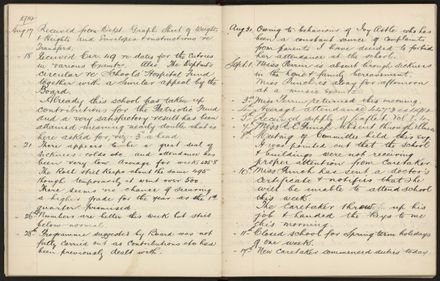 1942
Aug 17 Received from Dept. Graph Sheet of Weights
& Heights and Envelopes & instructions re
Transfers.
18 Received Cir. 149 re dates for the Intens
in various Exams. Also the Dept's
circular re School's Hospital Fund
together with a similar appeal by the
Board.
Already this school has taken up
contributions for the Patriotic Fund
and a very satisfactory result has been
attained meaning nearly double what is
here asked for, viz 3d a head.
21 There appears to be a great deal of
sickness & colds etc and attendance has
been very low. Average for week 425.8
The Roll still keeps about the same 495
though temporarily it went over 500
There seems no chance of securing
a higher grade for the year as the 1st
quarter promised.
26 Numbers are better this week but still
below normal.
28 Programme suggested by Board was not
fully carried out as contributions etc had
been previously dealt with.
Aug 31 Owing to behaviour of Ivy Noble who has
been a constant source of complaints
from parents I have decided to forbid
her attendance at the school.
Sept. 1 Miss Burns is absent through sickness
in the home & family bereavement.
Miss Purchas away for afternoon
at a music exam.
3rd Miss Burns returned this morning
4 Average attendance
5 Received supply of leaflet Vol. 1, 4.
7 Miss French absent this day.
9 Meeting of Committee held this evg
It was pointed out that the school
& buildings were not receiving
proper attention from Caretaker
10 Miss French has sent a doctor's
certificate & notifies that she
will be unable to attend school
this week.
The Caretaker threw up his
job & handed the keys to me
this morning.
11 Closed school for Spring term holidays
of one week.
17 New caretaker commenced duties today